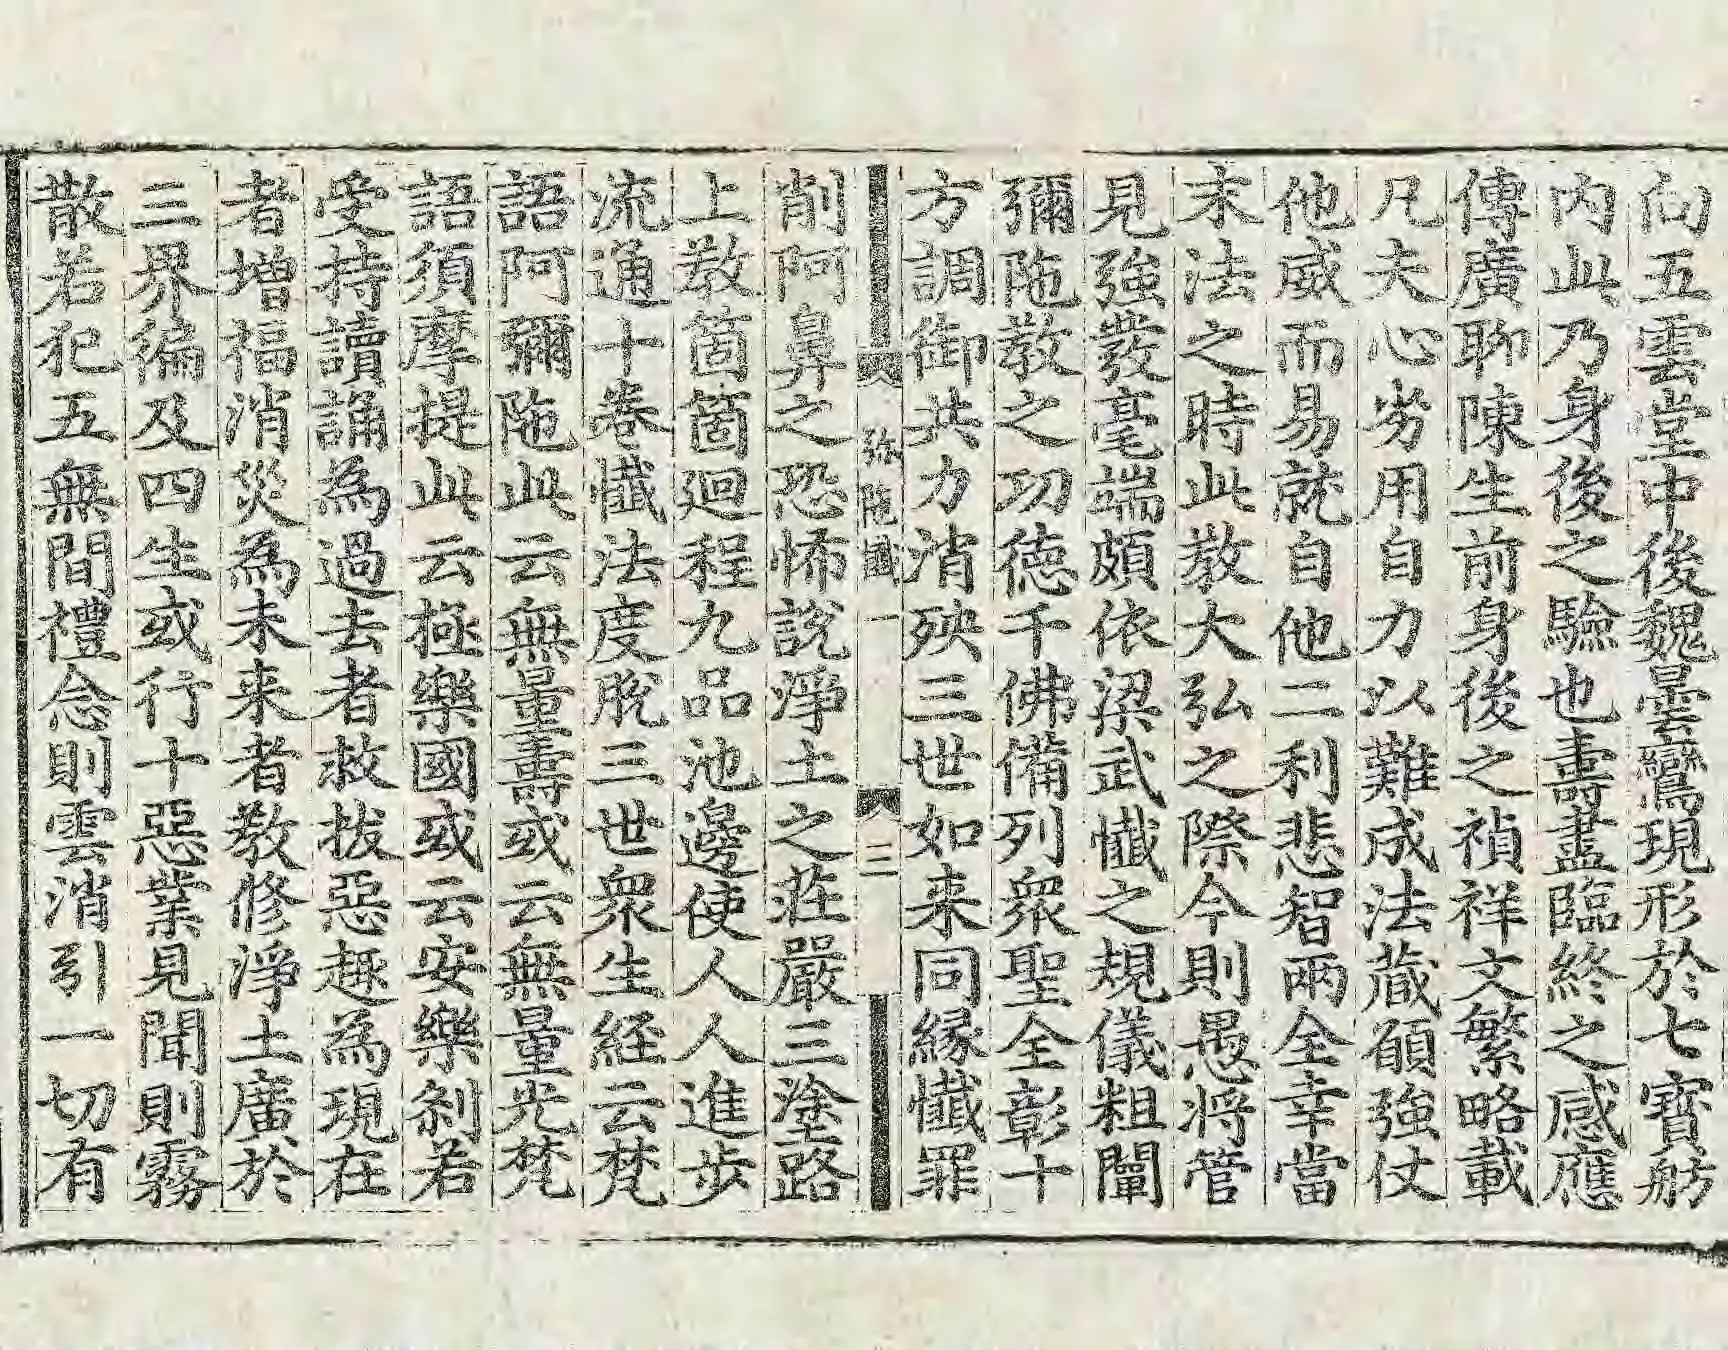 向五雲堂中後魏曇鸞現形於七寶舫
内此乃身後之驗也壽盡臨終之感應
傳廣聊陳生前身後之禎祥文繁略載
凡夫心劣用自力以難成法藏願強仗
他威而易就自他二利悲智兩全幸當
末法之時此教大弘之際今則愚將管
見強發毫端頗依梁武懺之規儀粗闡
彌陁教之功德千佛備列衆聖全彰十
方調御共力消殃三世如来同緣懺罪
弥陁懺一 二
削阿鼻之恐怖說淨土之莊嚴三塗路
上教箇箇迴程九品池邊使人人進步
流通十卷懺法度脫三世衆生経云梵
語阿彌陁此云無量壽或云無量光梵
語須摩提此云極樂國或云安樂刹若
受持讀誦為過去者救拔惡趣為現在
者增福消災為未来者教修淨土廣於
三界徧及四生或行十惡業見聞則霧
散若犯五無間禮念則雲消引一切有